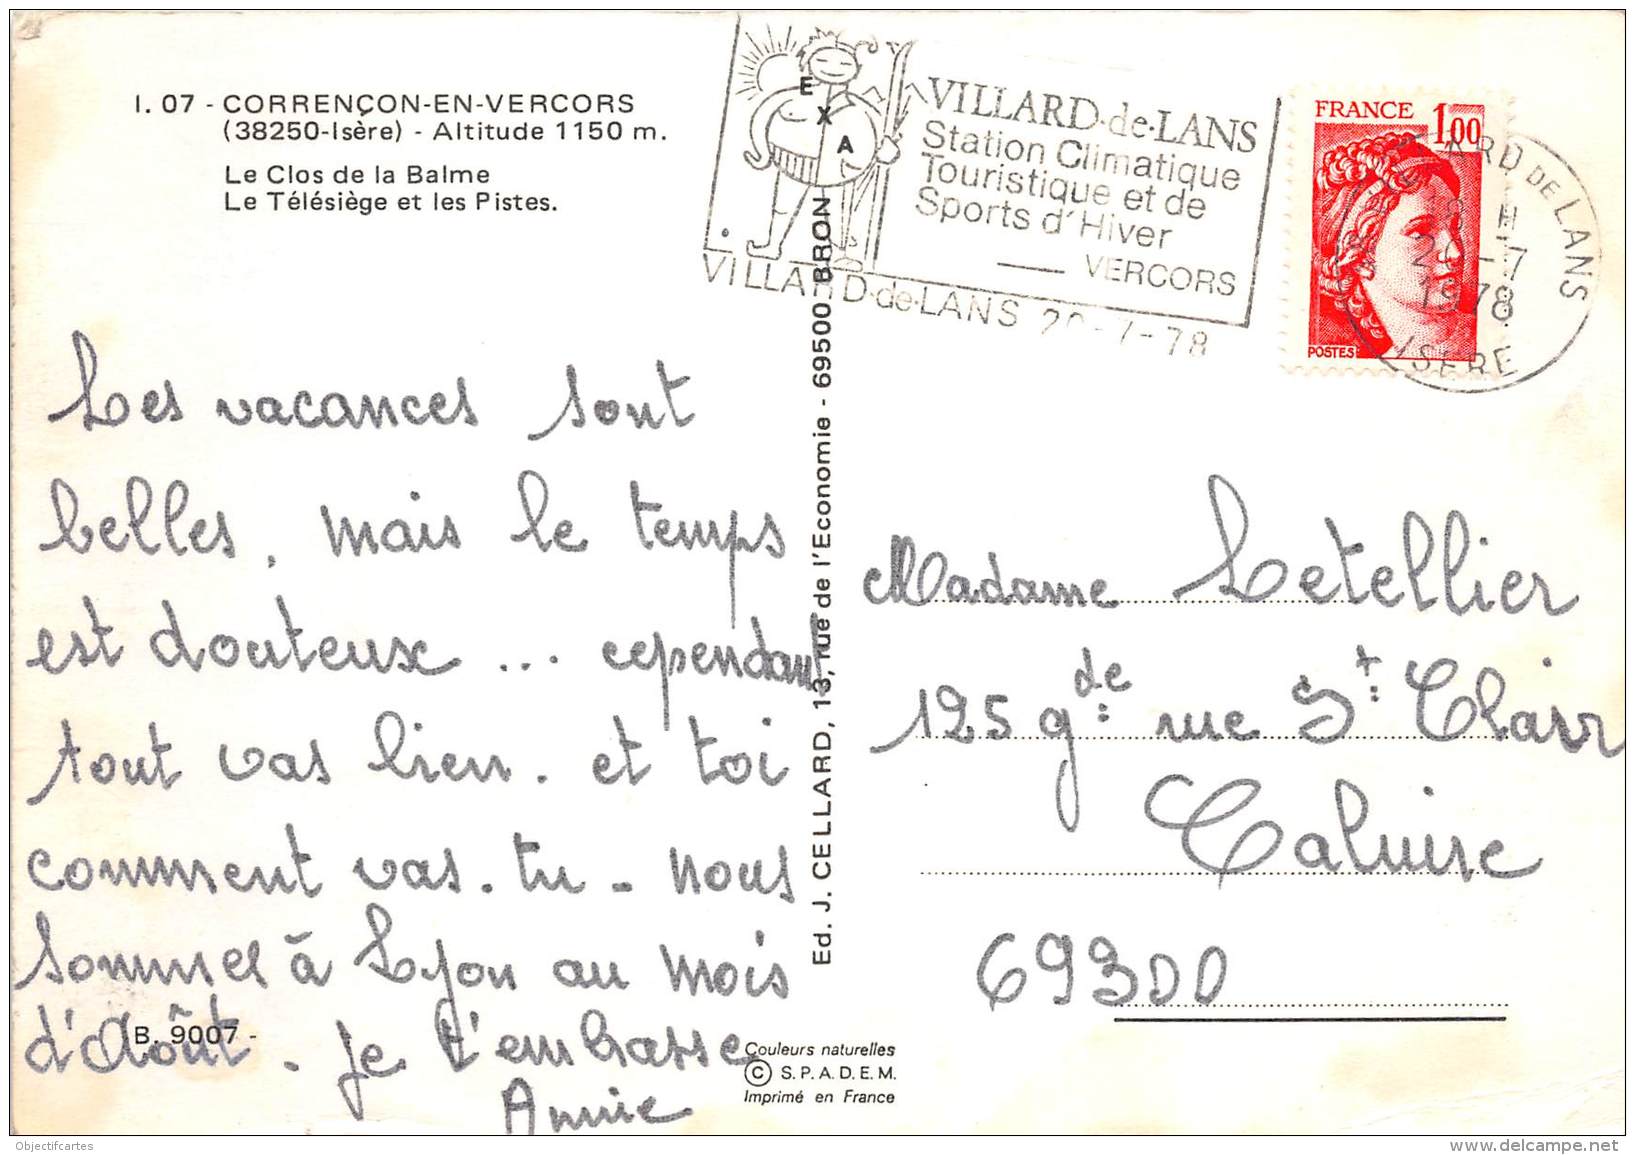 I. 07 - CORRENÇON-EN-VERCORS
(38250-Isère) - Altitude 1150 m.
Le Clos de la Balme
Le Télésiège et les Pistes.
E
X
A
VILLARD-de-LANS
Station Climatique
Touristique et de
Sports d'Hiver
— VERCORS
VILLARD-de-LANS 20-7-78
FRANCE 1,00
POSTES
ARD DE LANS
18 H
20-7
1978
ISERE
Les vacances sont
belles, mais le temps
est douteux ... cependant
tout vas bien. et toi
comment vas-tu - nous
sommes à Lyon au mois
d'Août. je t'embrasse
Annie
B. 9007 -
Ed. J. CELLARD, 13, rue de l'Economie - 69500 BRON
Couleurs naturelles
© S.P.A.D.E.M.
Imprimé en France
Madame Letellier
125 gde rue St Clair
Caluire
69300
Objectifcartes
www.delcampe.net